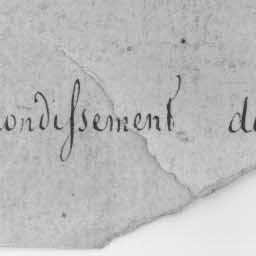 ondissement de